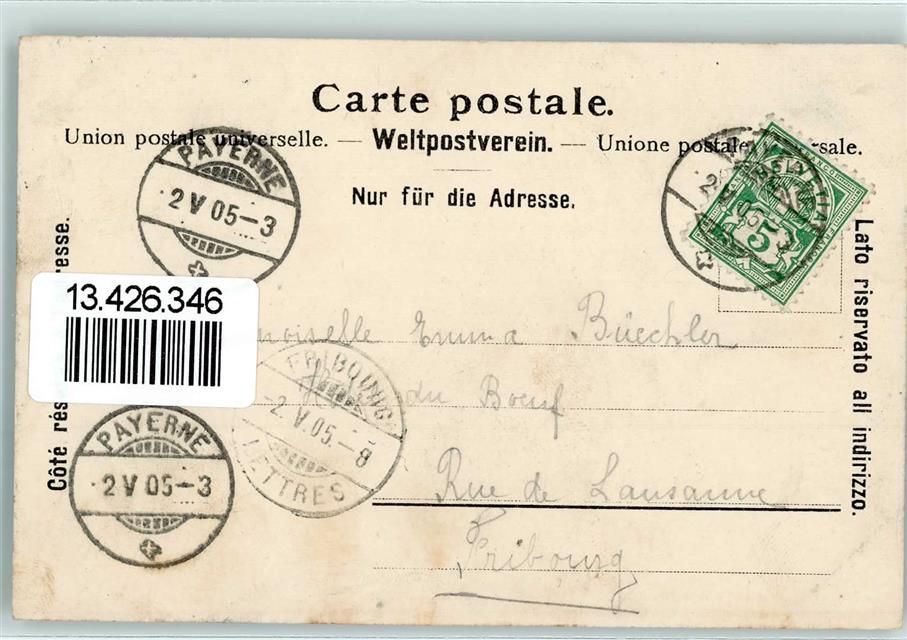 Carte postale.
Union postale universelle. — Weltpostverein. — Unione postale
Nur für die Adresse.
PAYERNE
2 V 05-3
HELVETIA
5
13.426.346
Côté
Lato riservato all indirizzo.
Emma Büechler
du Boeuf
Rue de Lausanne
Fribourg
FRIBOURG
2. V. 05.-8
LETTRES
PAYERNE
2 V 05-3